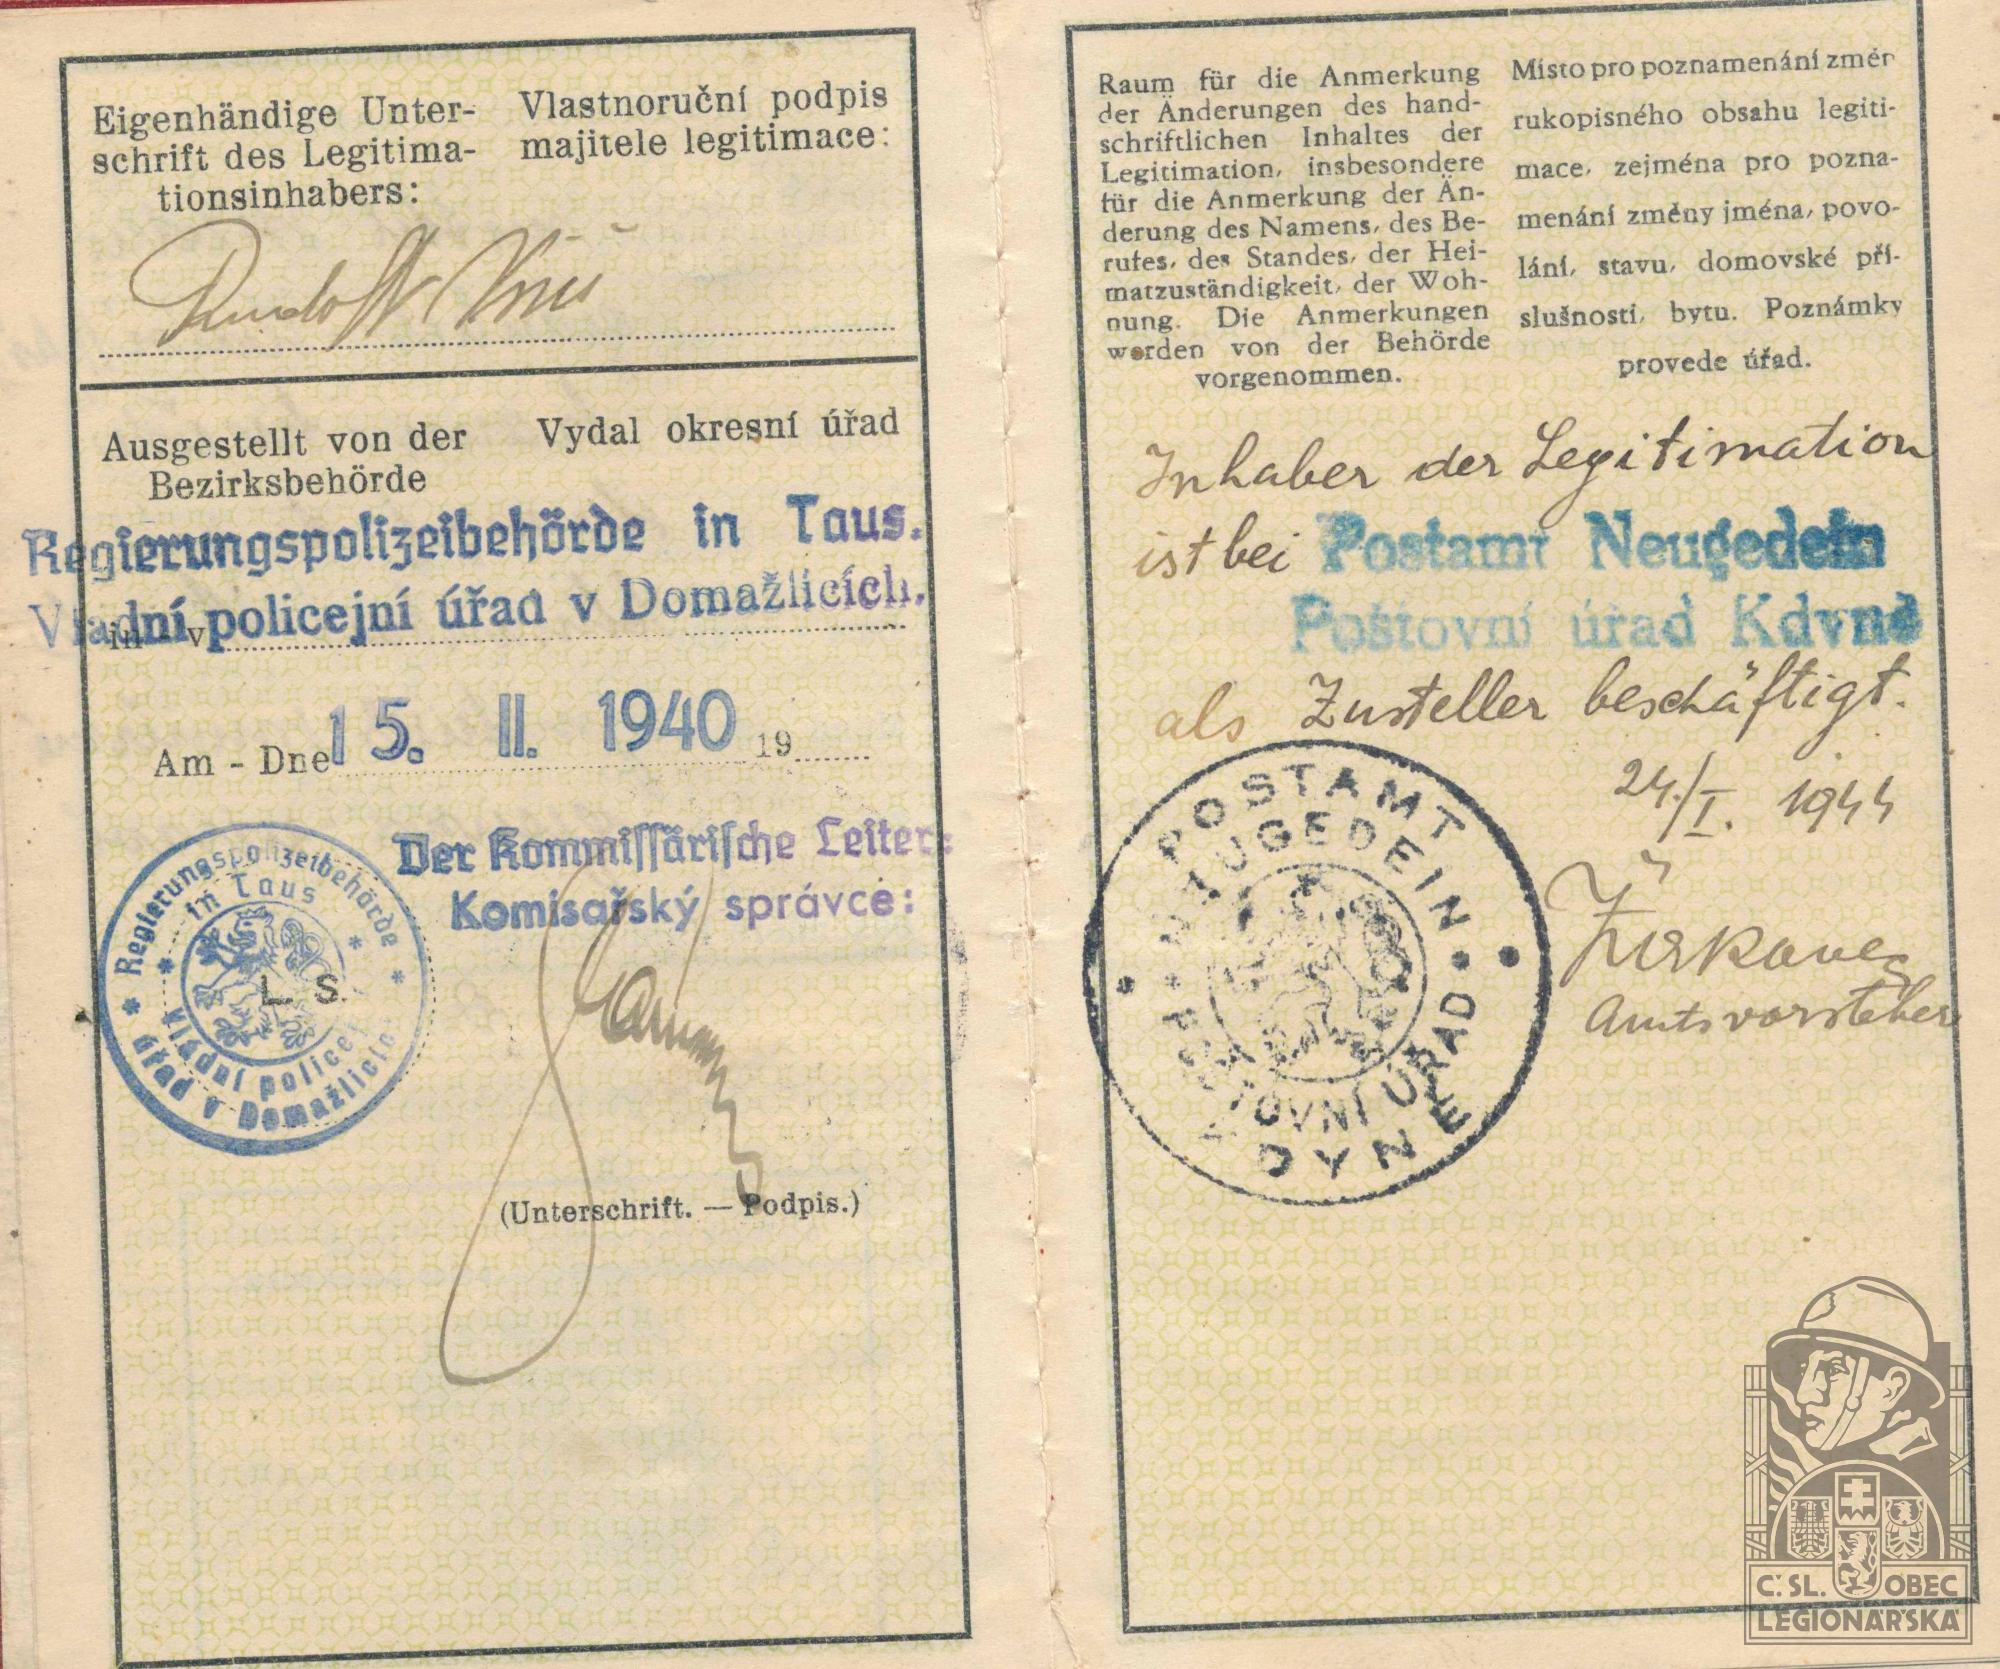 Eigenhändige Unter-
schrift des Legitima-
tionsinhabers:
Vlastnoruční podpis
majitele legitimace:
Rudolf
Ausgestellt von der
Bezirksbehörde
Vydal okresní úřad
Regierungspolizeibehörde in Taus.
Vladní policejní úřad v Domažlicích.
in v
Am - Dne 15. II. 1940 19
Der Kommissärische Leiter:
Komisařský správce:
Regierungspolizeibehörde
in Taus
L. S.
Vládní policejní
úřad v Domažlicích
(Unterschrift. — Podpis.)
Raum für die Anmerkung
der Änderungen des hand-
schriftlichen Inhaltes der
Legitimation, insbesondere
für die Anmerkung der Än-
derung des Namens, des Be-
rufes, des Standes, der Hei-
matzuständigkeit, der Woh-
nung. Die Anmerkungen
werden von der Behörde
vorgenommen.
Místo pro poznamenání změn
rukopisného obsahu legiti-
mace, zejména pro pozna-
menání změny jména, povo-
lání, stavu, domovské pří-
slušnosti, bytu. Poznámky
provede úřad.
Inhaber der Legitimation
ist bei Postamt Neugedein
Poštovní úřad Kdyně
als Zusteller beschäftigt.
24./I. 1944
Amtsvorsteher
POSTAMT
NEUGEDEIN
POŠTOVNÍ ÚŘAD
KDYNĚ
Č. SL. OBEC
LEGIONÁŘSKÁ